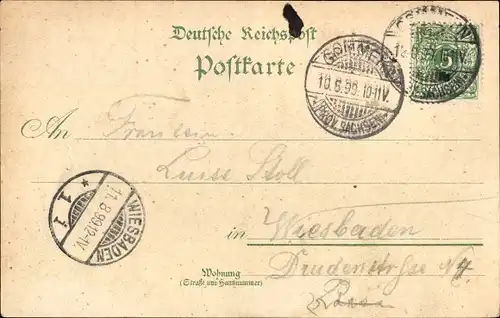 Deutsche Reichspost
Postkarte
GOMMERN
10.6.99.10-11V.
(PROV. SACHSEN)
5
An Fräulein
Luise Stoll
WIESBADEN
11.8.99.12-1V.
* 1 1
in Wiesbaden
Wohnung
(Straße und Hausnummer)
Drudenstraße